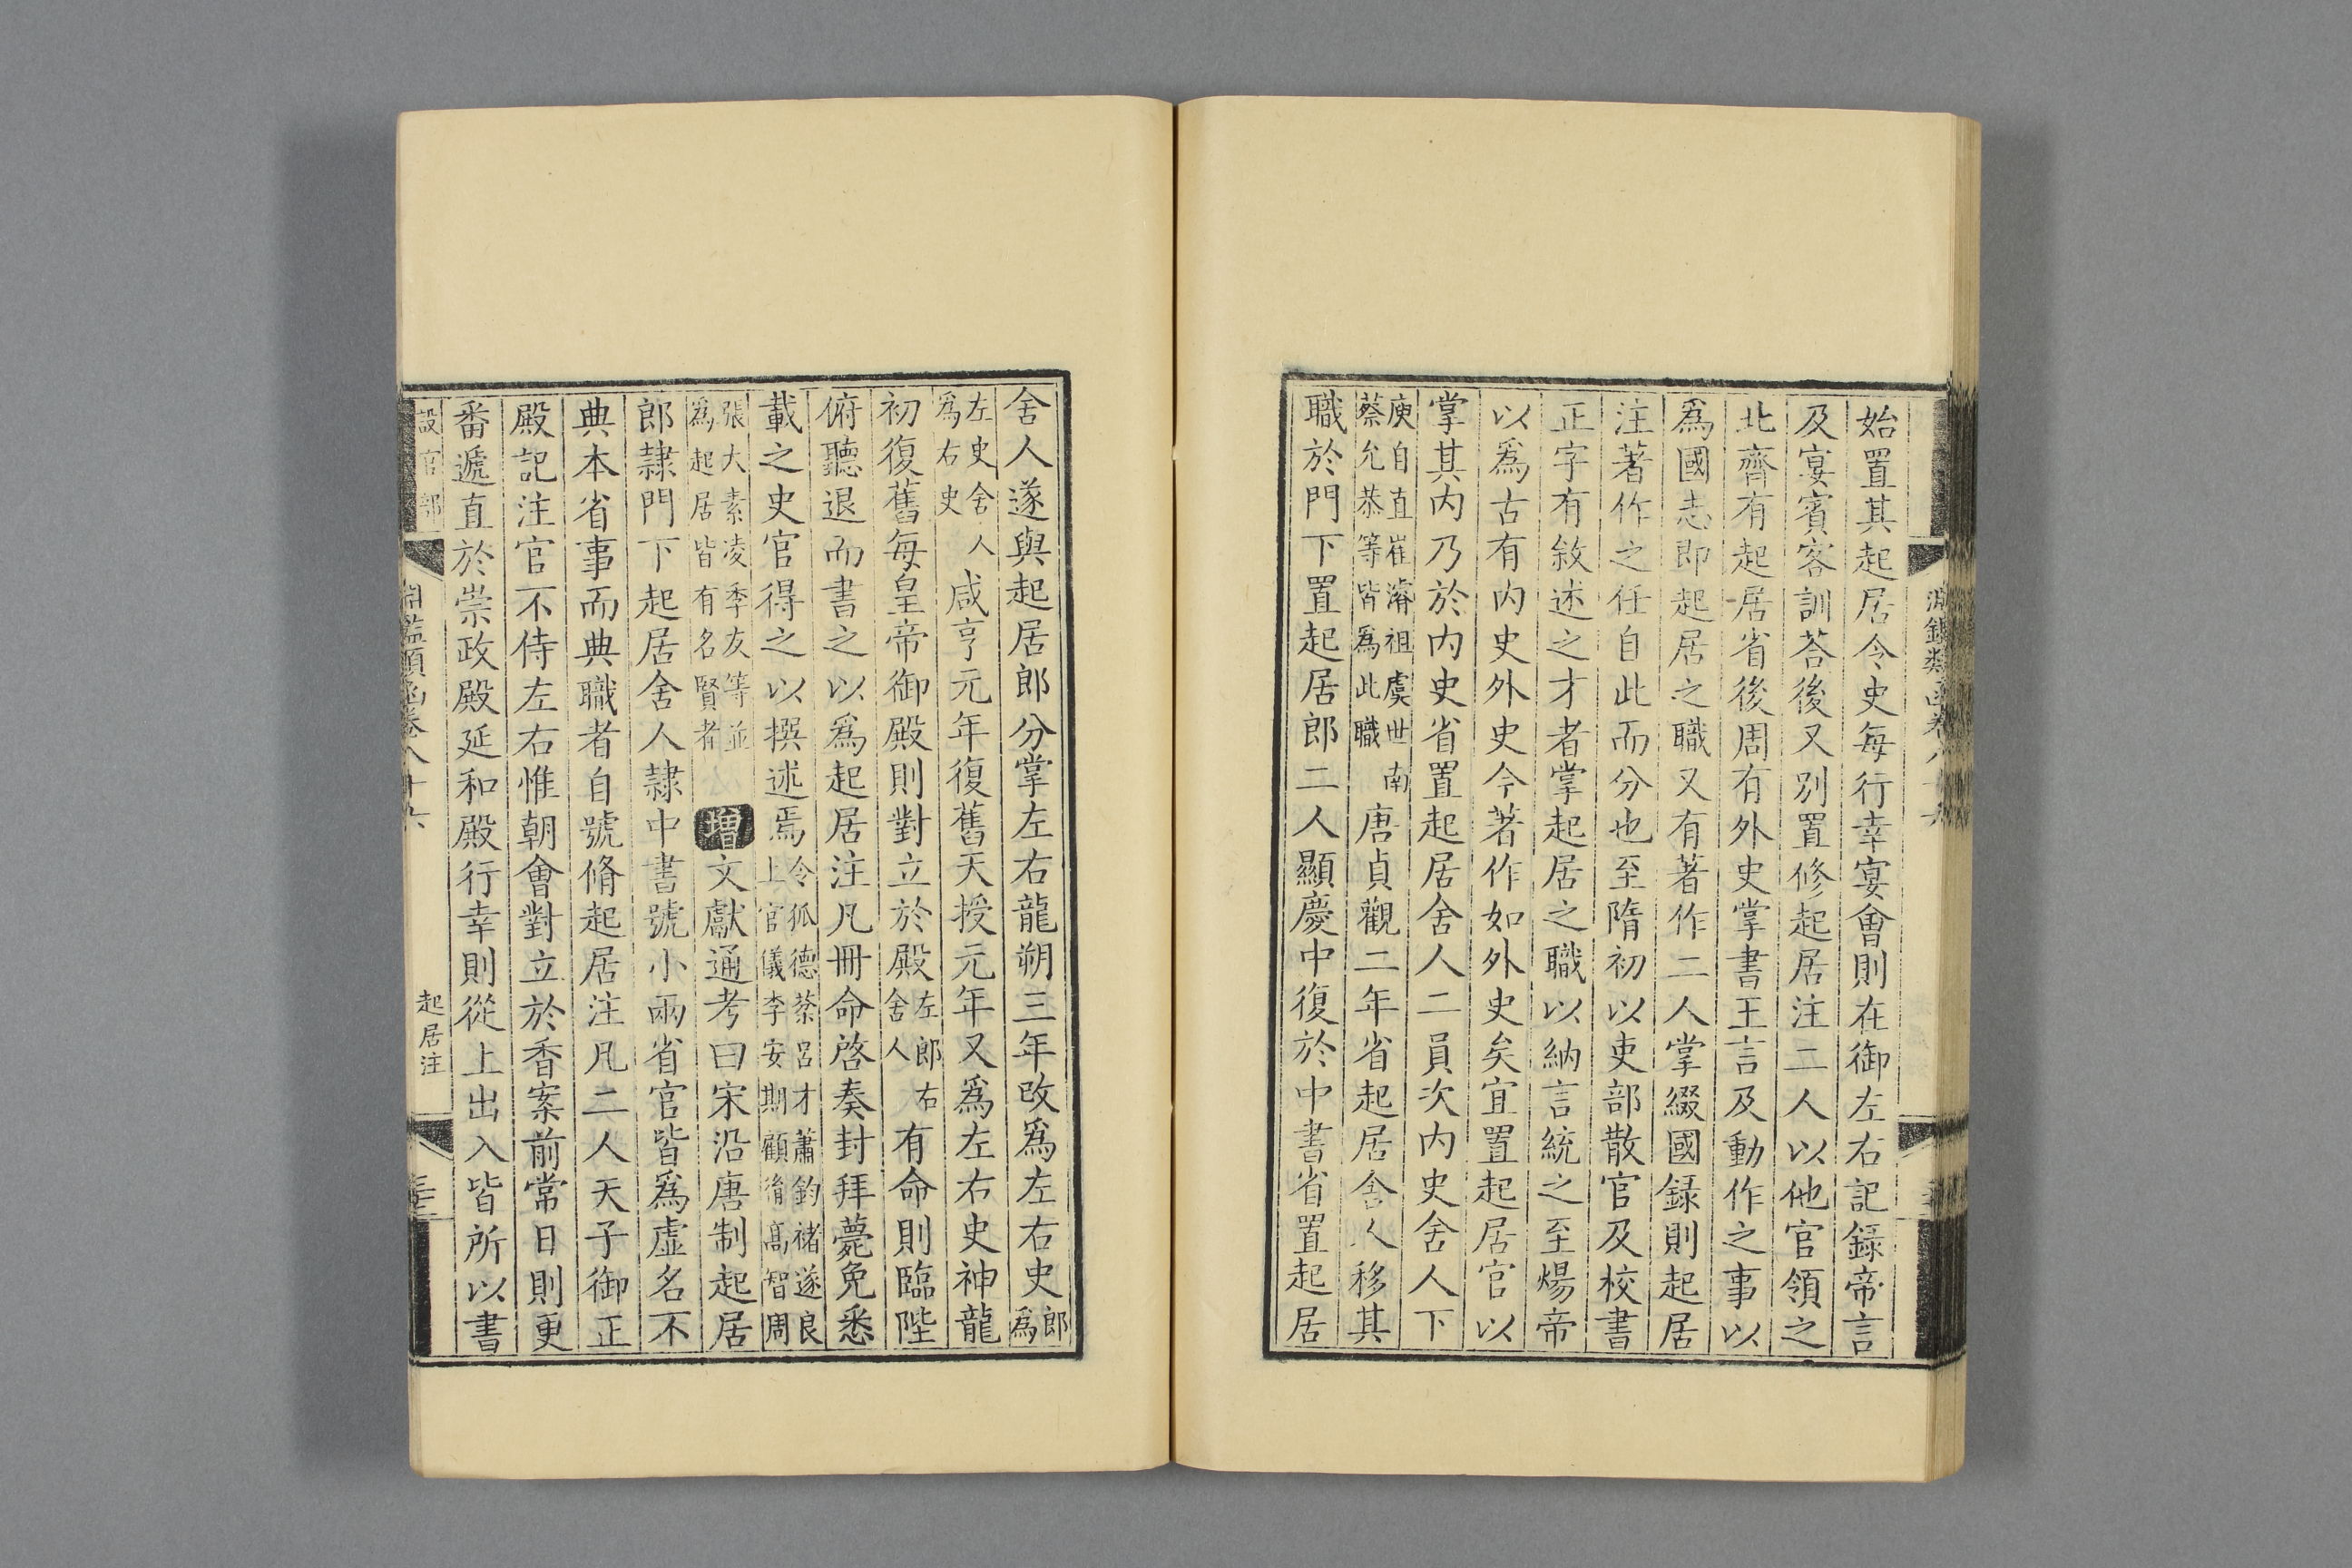 始置其起居令史每行幸宴會則在御左右記錄帝言
及宴賓客訓荅後又別置修起居注二人以他官領之
北齊有起居省後周有外史掌書王言及動作之事以
爲國志即起居之職又有著作二人掌綴國録則起居
注著作之任自此而分也至隋初以吏部散官及校書
正字有敘述之才者掌起居之職以納言統之至煬帝
以爲古有内史外史今著作如外史矣宜置起居官以
掌其内乃於内史省置起居舍人二員次内史舍人下
庾自直崔濬祖虞世南
蔡允恭等皆爲此職
唐貞觀二年省起居舍人移其
職於門下置起居郎二人顯慶中復於中書省置起居
舍人遂與起居郎分掌左右龍朔三年改爲左右史
郎爲
左史舍人
爲右史
咸亨元年復舊天授元年又爲左右史神龍
初復舊每皇帝御殿則對立於殿
左郎右
舍人
有命則臨陛
俯聽退而書之以爲起居注凡冊命啓奏封拜薨免悉
載之史官得之以撰述焉
令狐德棻呂才蕭鈞褚遂良
上官儀李安期顧胤高智周
張大素凌季友等並
爲起居皆有名賢者
增
文獻通考曰宋沿唐制起居
郎隷門下起居舍人隷中書號小兩省官皆爲虛名不
典本省事而典職者自號脩起居注凡二人天子御正
殿記注官不侍左右惟朝會對立於香案前常日則更
番遞直於崇政殿延和殿行幸則從上出入皆所以書
設官部
淵鑑類函卷八十六
起居注